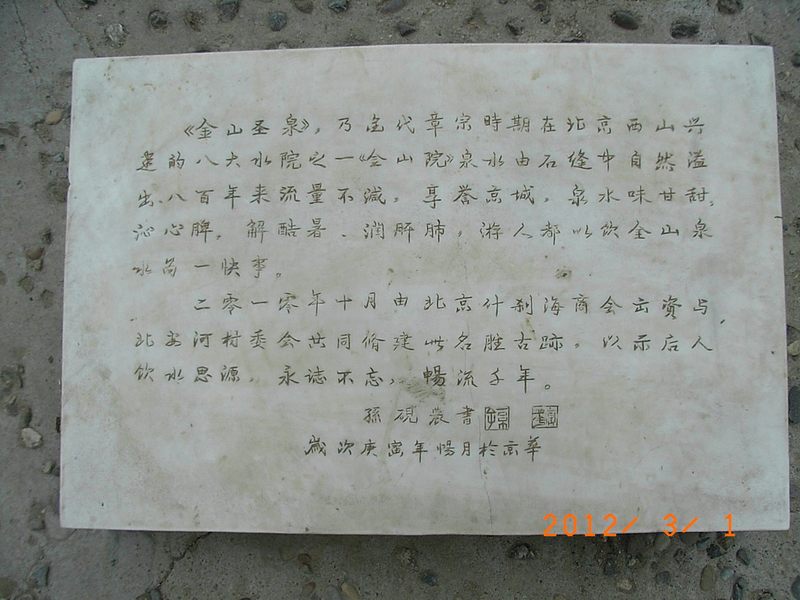 《金山圣泉》，乃金代章宗時期在北京西山兴
建的八大水院之一《金山院》泉水由石缝中自然溢
出、八百年来流量不減，享誉京城，泉水味甘甜，
沁心脾，解酷暑、润肝肺，游人都以饮金山泉
水為一快事。
二零一零年十月由北京什刹海商会出资与
北安河村委会共同脩建此名胜古跡，以示后人
饮水思源，永誌不忘，暢流千年。
孫硯農書
歲次庚寅年暢月於京華
2012/ 3/ 1